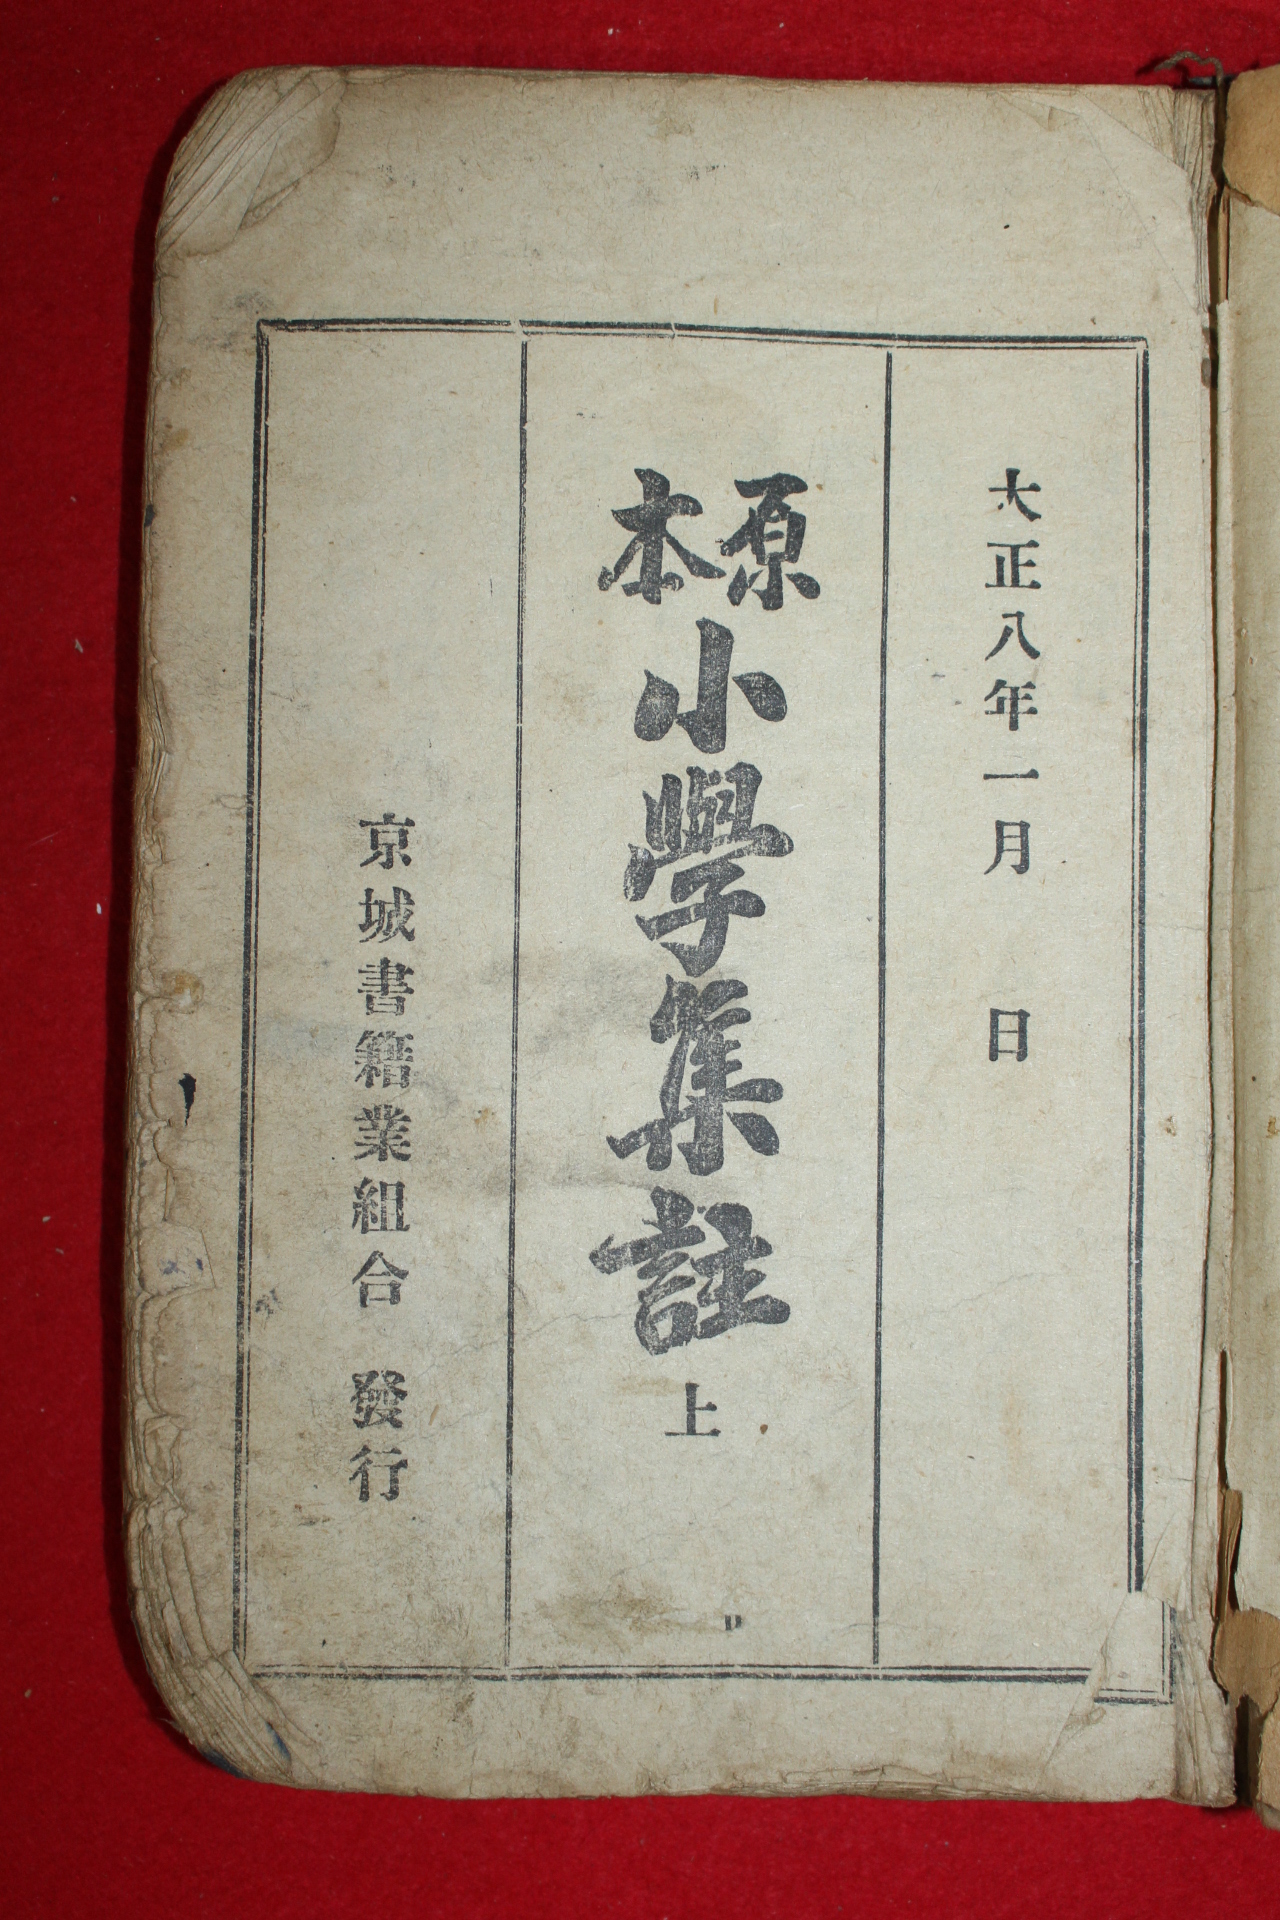 大正八年一月 日
原本 小學集註 上
京城書籍業組合 發行